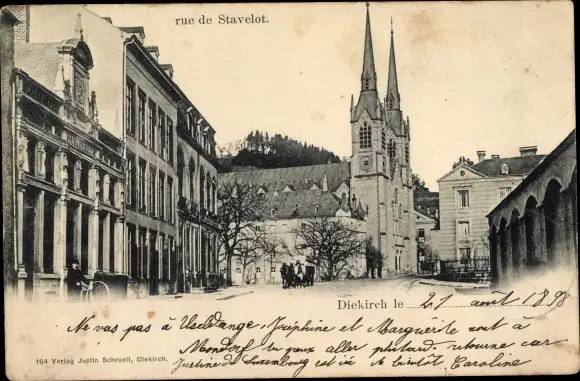 rue de Stavelot.
Diekirch le 21 août 1898
Ne vas pas à Useldange, Joséphine et Marguerite sont à
Mondorf tu peux aller plus tard, retourne car
Justine du Luxembourg est ici A bientôt Caroline
164 Verlag Justin Schroell, Diekirch.